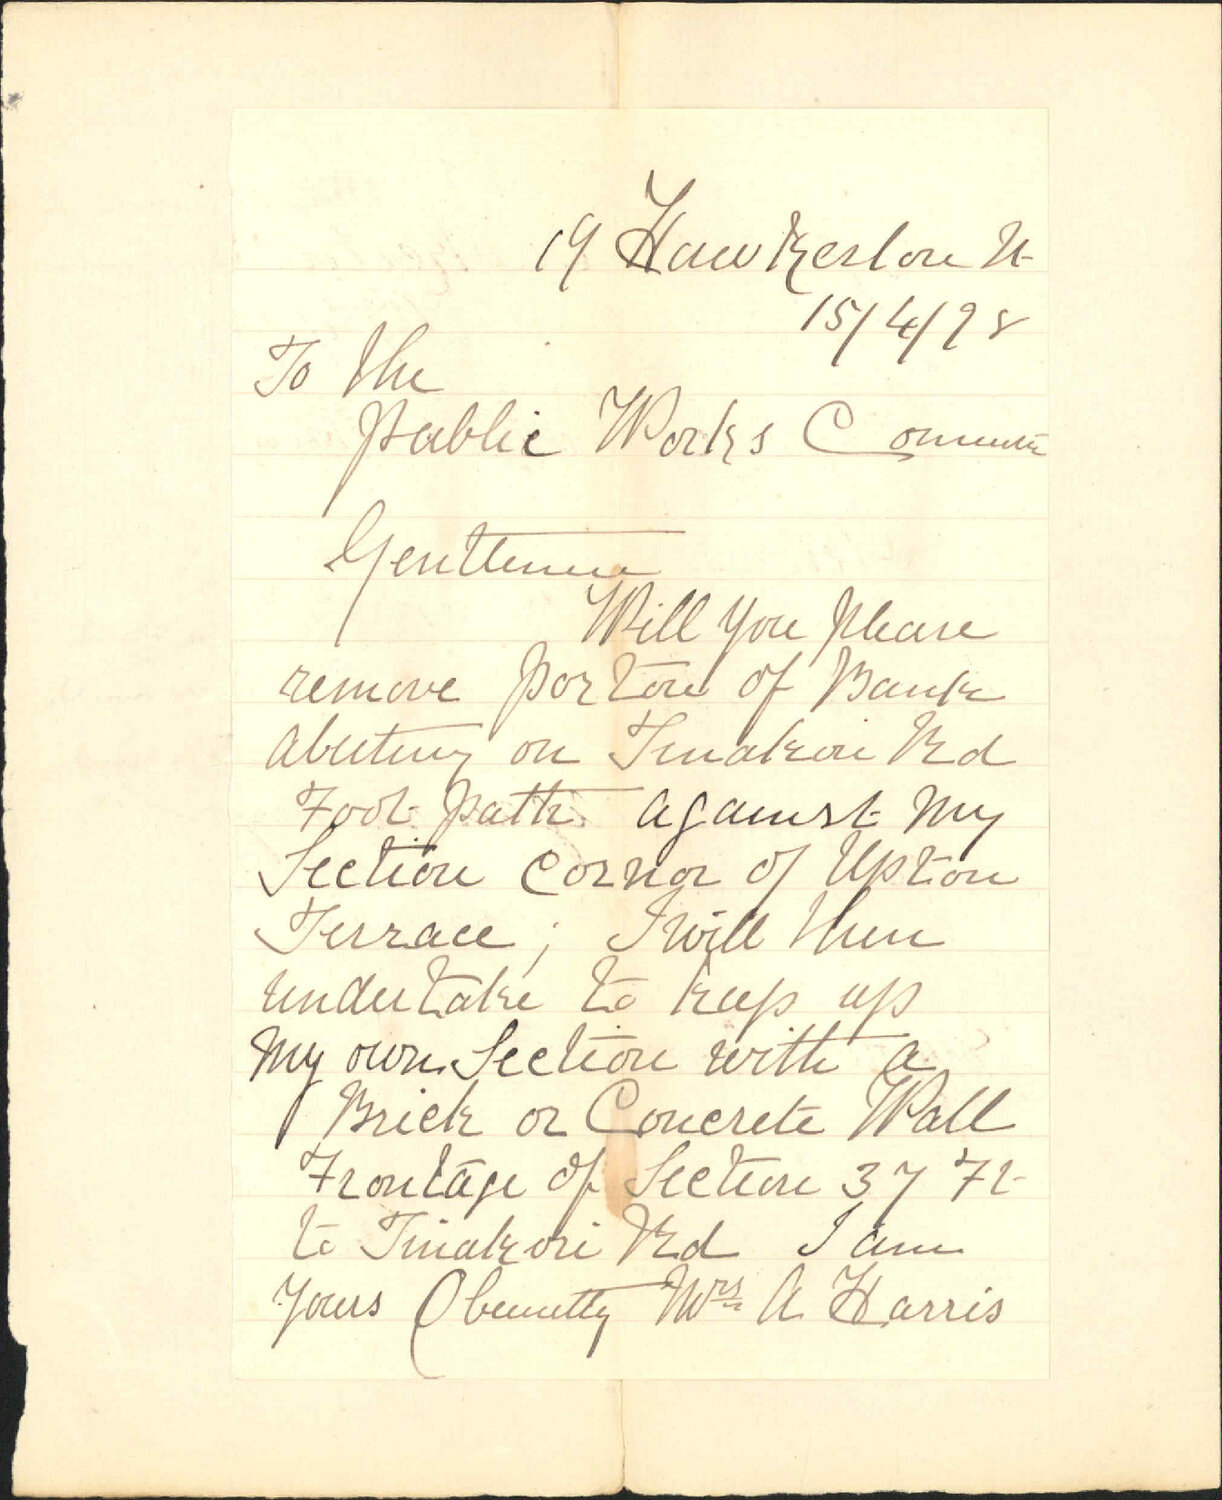 19 Hawkeston St
15/4/98
To the
Public Works Committe
Gentlemen
Will you please
remove porton of Bank
abutting on Tinakori Rd
Foot path against my
Section cornor of Upton
Terrace ; I will then
undertake to keep up
my own Section with a
Brick or Concrete Wall
Frontage of Section 37 Ft
to Tinakori Rd I am
Yours Obeniettly Mrs A Harris